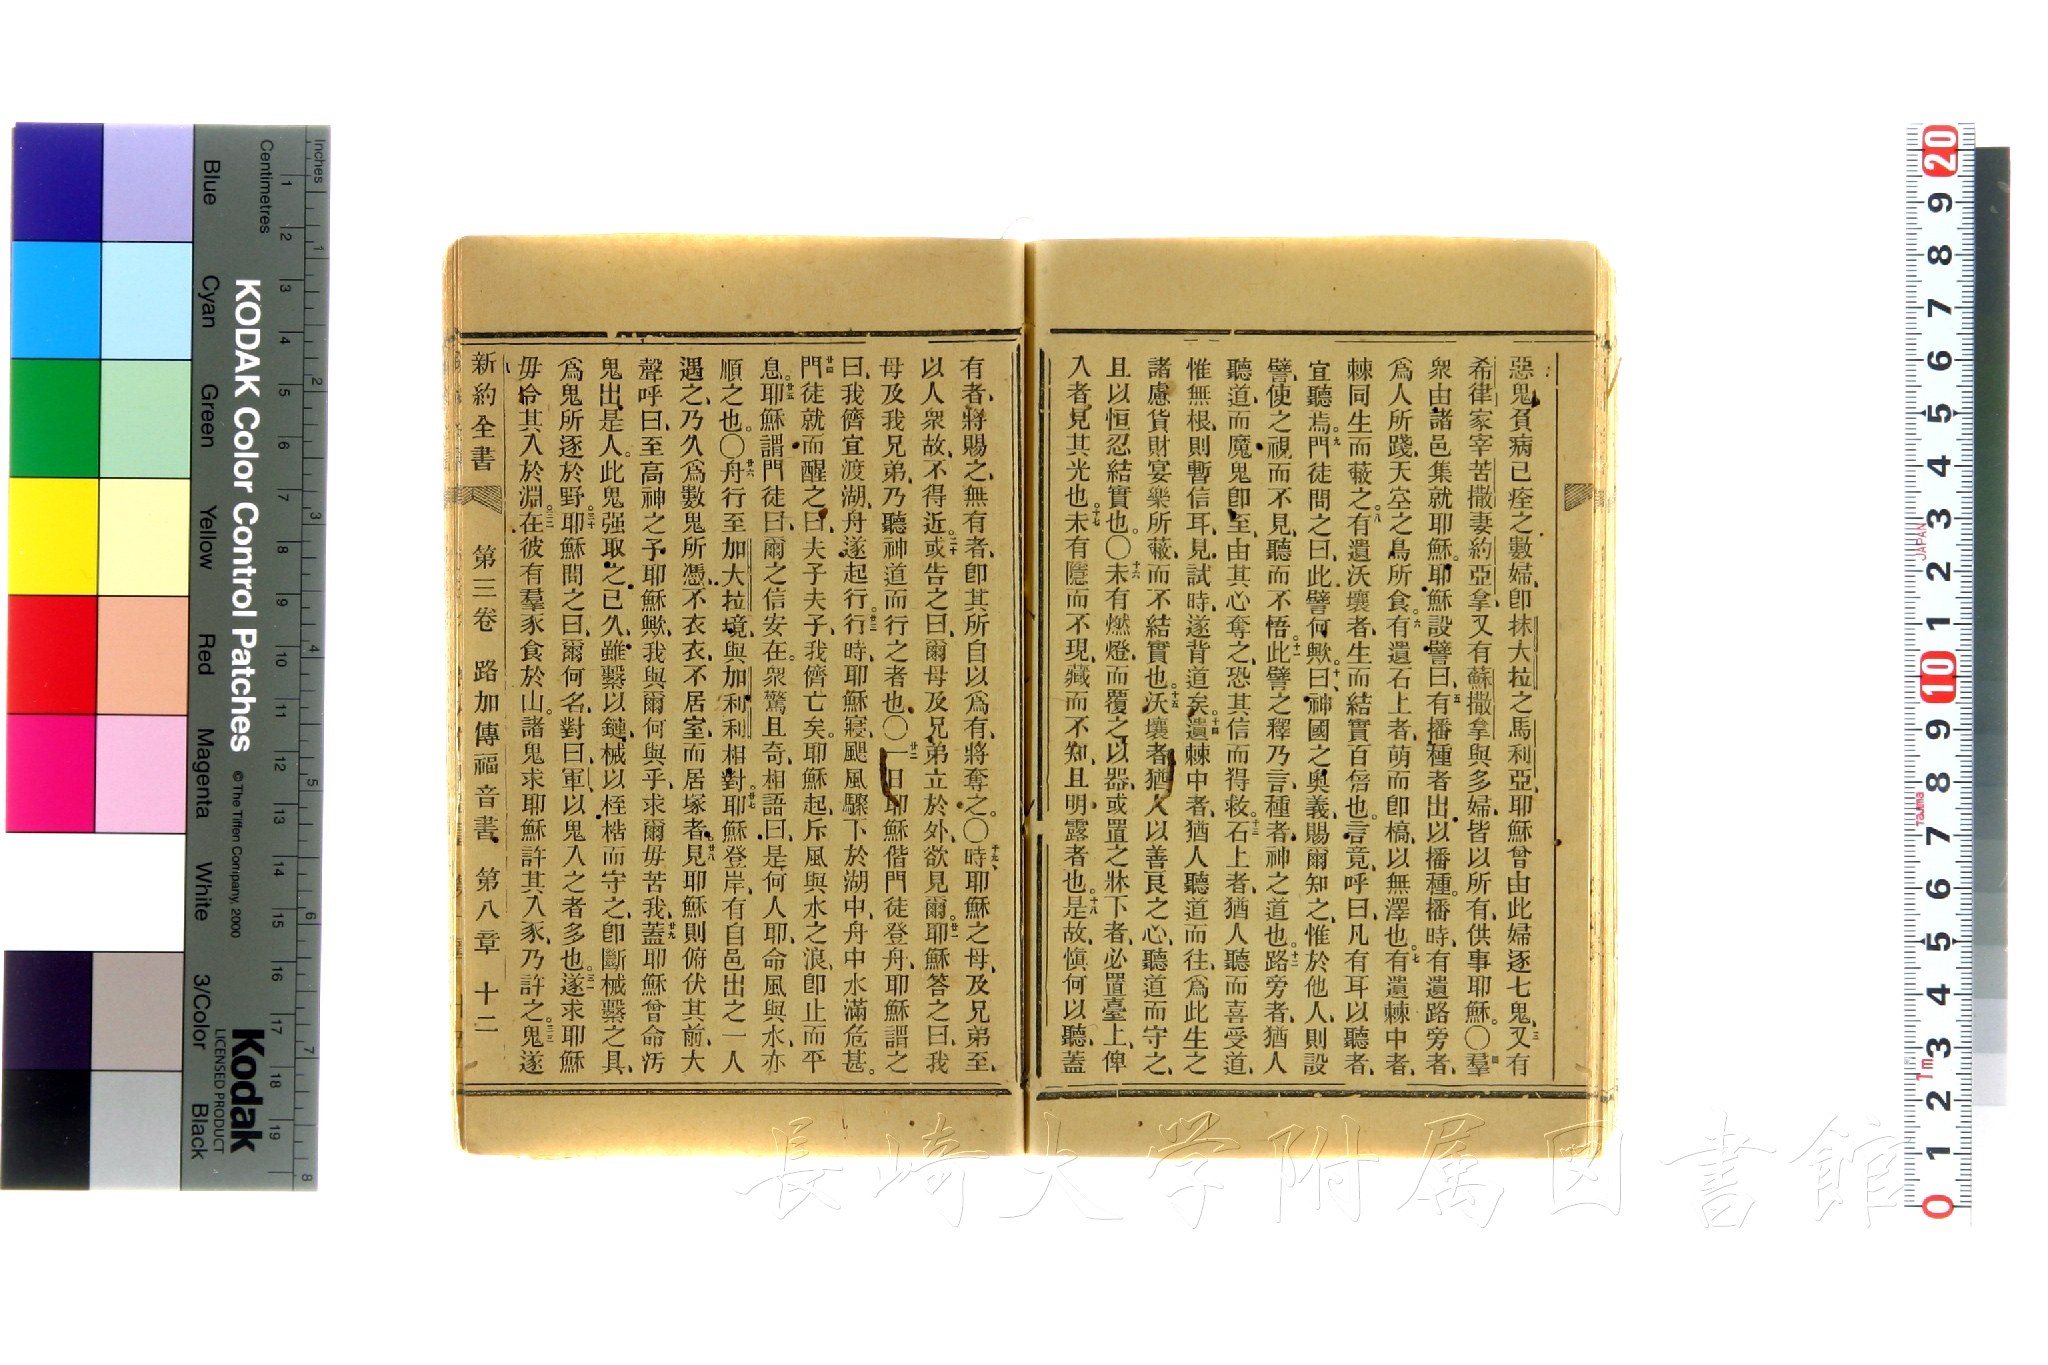 惡鬼負病已痊之數婦、卽抹大拉之馬利亞、耶穌曾由此婦逐七鬼、三又有
希律家宰苦撒妻約亞拿、又有蘇撒拿、與多婦、皆以所有、供事耶穌。〇四羣
衆由諸邑集就耶穌。耶穌設譬曰、五有播種者出以播種。播時、有遺路旁者、
爲人所踐、天空之鳥所食。六有遺石上者、萌而卽槁、以無澤也。七有遺棘中者、
棘同生而蔽之。八有遺沃壤者、生而結實百倍也。言竟、呼曰、凡有耳以聽者、
宜聽焉。九門徒問之曰、此譬何歟。十曰、神國之奧義、賜爾知之、惟於他人、則設
譬、使之視而不見、聽而不悟。十一此譬之釋乃言、種者、神之道也。十二路旁者、猶人
聽道、而魔鬼卽至、由其心奪之、恐其信而得救。十三石上者、猶人聽而喜受道、
惟無根、則暫信耳、見試時、遂背道矣。十四遺棘中者、猶人聽道而往、爲此生之
諸慮貨財宴樂所蔽、而不結實也。十五沃壤者、猶人以善良之心、聽道而守之、
且以恒忍結實也。〇十六未有燃燈而覆之以器、或置之牀下者、必置臺上、俾
入者見其光也。十七未有隱而不現、藏而不知、且明露者也。十八是故、愼何以聽、蓋
有者、將賜之、無有者、卽其所自以爲有、將奪之。〇十九時、耶穌之母、及兄弟至、
以人衆故、不得近。二十或告之曰、爾母及兄弟立於外、欲見爾。廿一耶穌答之曰、我
母及我兄弟、乃聽神道而行之者也。〇廿二一日耶穌偕門徒登舟、耶穌謂之
曰、我儕宜渡湖、舟遂起行。廿三行時、耶穌寢、颶風驟下於湖中、舟中水滿危甚。
廿四門徒就而醒之曰、夫子夫子、我儕亡矣。耶穌起、斥風與水之浪、卽止而平
息。廿五耶穌謂門徒曰、爾之信安在。衆驚且奇、相語曰、是何人耶、命風與水、亦
順之也。〇廿六舟行至加大拉境、與加利利相對。廿七耶穌登岸、有自邑出之一人
遇之、乃久爲數鬼所憑、不衣衣、不居室、而居塚者。廿八見耶穌則俯伏其前、大
聲呼曰、至高神之子耶穌歟、我與爾何與乎、求爾毋苦我、廿九蓋耶穌曾命汚
鬼出是人。此鬼强取之已久、雖繫以鏈械以桎梏而守之、卽斷械繫之具、
爲鬼所逐於野。三十耶穌問之曰、爾何名、對曰、軍、以鬼入之者多也。三一遂求耶穌
毋令其入於淵。三二在彼有羣豕食於山。諸鬼求耶穌許其入豕、乃許之。三三鬼遂
新約全書 第三卷 路加傳福音書 第八章 十二
長崎大学附属図書館
Inches
Centimetres
KODAK Color Control Patches
© The Tiffen Company, 2000
Kodak
LICENSED PRODUCT
Blue Cyan Green Yellow Red Magenta White 3/Color Black
JAPAN
Tajima
1m